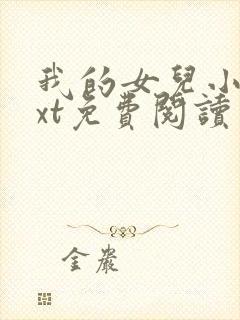 我的女兒小
xt免費閱讀
金巖